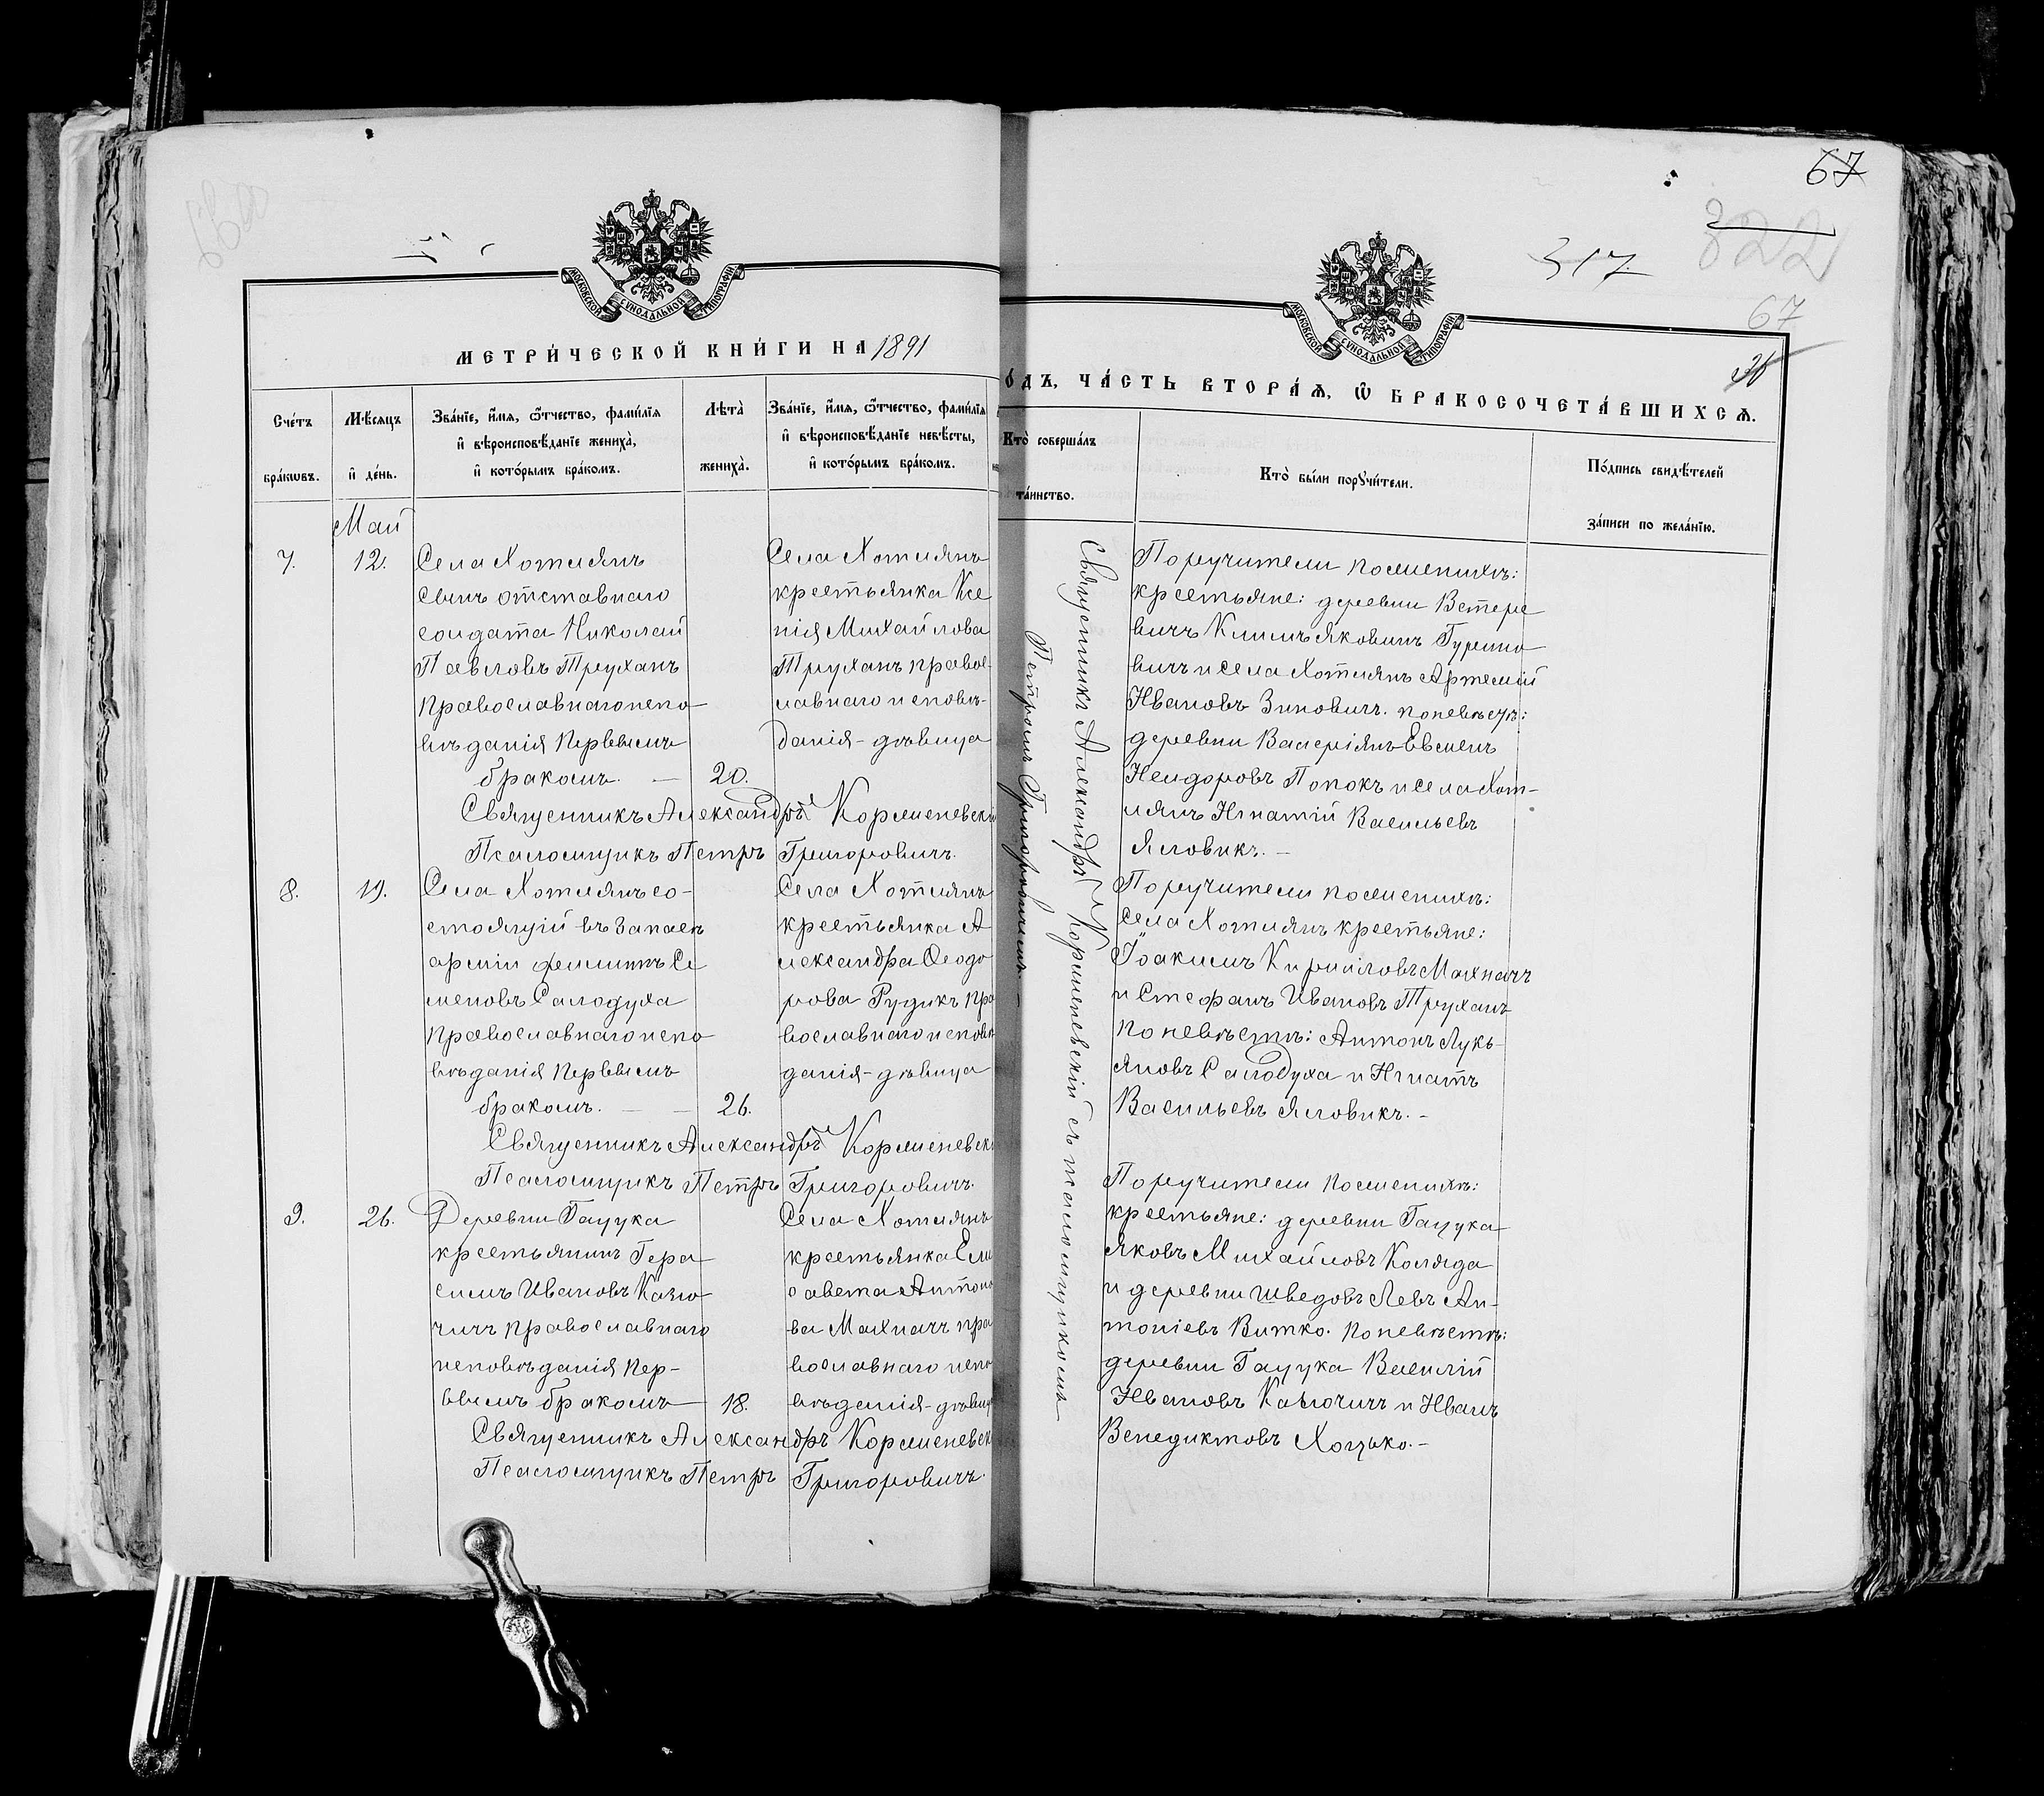 67
317
322
67
МОСКОВСКОЙ СУНОДАЛЬНОЙ ТИПОГРАФІИ
МЕТРИ́ЧЕСКОЙ КНИ́ГИ НА 1891
Сче́тъ бра́кѡвъ.
Мѣ́сяцъ и҆ де́нь.
Зва́нїе, и҆́мѧ, ѻ҆́тчество, фами́лїѧ
и҆ вѣроисповѣ́данїе жениха̀,
и҆ кото́рымъ бра́комъ.
Лѣта̀ жениха̀.
Зва́нїе, и҆́мѧ, ѻ҆́тчество, фами́лїѧ
и҆ вѣроисповѣ́данїе невѣ́сты,
и҆ кото́рымъ бра́комъ.
Май
7.
12.
Села Хотлянъ
сынъ отставнаго
солдата Николай
Павловъ Труханъ
православнаго испо
вѣданія первымъ
бракомъ. —
20.
Села Хотлянъ
крестьянка Ксе
нія Михайлова
Труханъ правос-
лавнаго исповѣ-
данія - дѣвица
Священникъ Александръ Корженевскій
Псаломщикъ Петръ Григоровичъ.
8.
19.
Села Хотлянъ со-
стоящій въ запасѣ
арміи Филиппъ Се
меновъ Салодуха
православнаго испо
вѣданія первымъ
бракомъ. — —
26.
Села Хотлянъ
крестьянка А
лександра Ѳеодо
рова Рудикъ пра
вославнаго исповѣ
данія - дѣвица
Священникъ Александръ Корженевск
Псаломщикъ Петръ Григоровичъ.
9.
26.
Деревни Гацука
крестьянинъ Гера
симъ Ивановъ Казю
чичъ православнаго
исповѣданія пер-
вымъ бракомъ
18.
Села Хотлянъ
крестьянка Ели
савета Антоно
ва Махначъ пра
вославнаго испо
вѣданія - дѣвиц
Священникъ Александръ Корженевск
Псаломщикъ Петръ Григоровичъ.
МОСКОВСКОЙ СУНОДАЛЬНОЙ ТИПОГРАФІИ
О́ДЪ, ЧА́СТЬ ВТОРА́Ѧ, Ѽ БРАКОСОЧЕТА́ВШИХСѦ.
Кто̀ соверша́лъ
та́инство.
Кто̀ бы́ли порꙋчи́тели.
По́дпись свидѣ́телей
за́писи по жела́нїю.
Священникъ Александръ Корженевскій съ псаломщикомъ
Петромъ Григоровичемъ. —
Поручители по женихѣ:
крестьяне: деревни Ветере
вичъ Климъ Яковинъ Гурино
вичъ и села Хотлянъ Артемій
Ивановъ Зиновичъ. по невѣстѣ:
деревни Валеріянъ Евменъ
Исидоровъ Попокъ и села Хот-
лянъ Игнатій Васильевъ
Яловикъ. —
Поручители по женихѣ:
села Хотлянъ крестьяне:
Іоакимъ Кириловъ Махначъ
и Стефанъ Ивановъ Труханъ
по невѣстѣ: Антонъ Лукь
яновъ Салодуха и Игнатъ
Васильевъ Яловикъ. —
Поручители по женихѣ:
крестьяне: деревни Гацука
Яковъ Михайловъ Коляда
и деревни Шведовъ Левъ Ан-
тоніевъ Витко. по невѣстѣ:
деревни Гацука Василій
Ивановъ Казючичъ и Иванъ
Венедиктовъ Хоцько. —